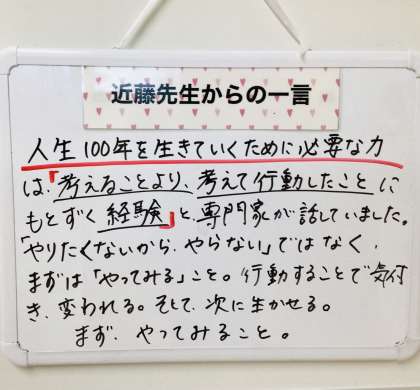 近藤先生からの一言
人生100年を生きていくために必要な力
は、「考えることより、考えて行動したことに
もとずく経験」と、専門家が話していました。
「やりたくないから、やらない」ではなく、
まずは「やってみる」こと。行動することで気付
き、変われる。そして、次に生かせる。
まず、やってみること。